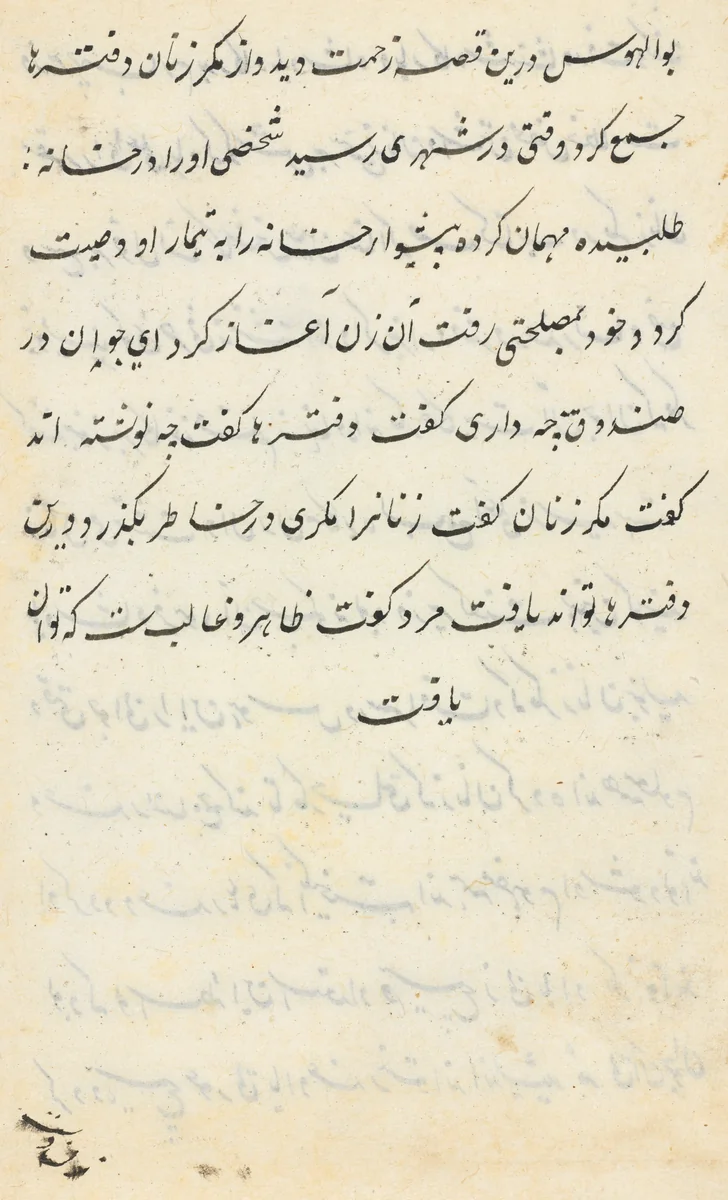 بوالهوس درین قصه زحمت دید و از مکر زنان دفترها
جمع کرد وقتی در شهری رسید شخصی او را در خانه
طلبیده مهمان کرده پیشوا خانه را به تیمار او وصیت
کرد و خود بمصلحتی رفت آن زن آغاز کرد ای جوان در
صندوق چه داری کفت دفترها کفت چه نوشته اند
کفت مکر زنان کفت زنانرا مکری در خاطر بکذرد و درین
دفترها تواند یافت مرد کفت ظاهر و غالبست که توان
یافت